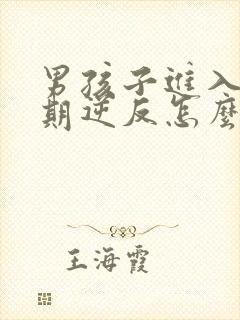 男孩子進入
期逆反怎麼
王海霞